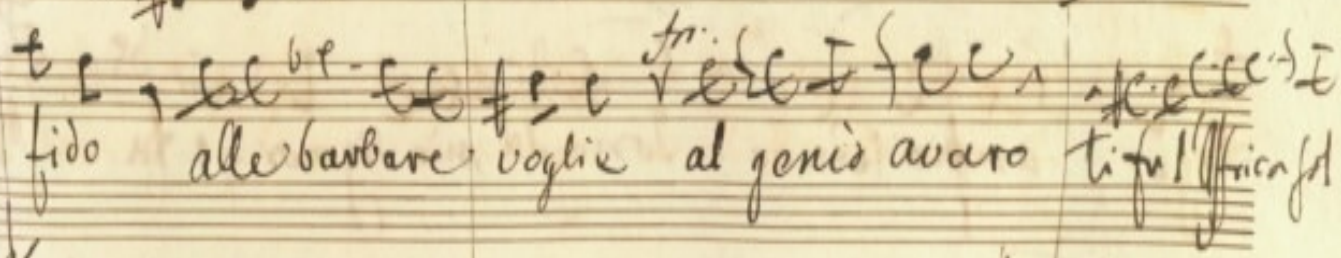 fido alle barbare voglie al geniò avaro ti fu l'Affrica sol